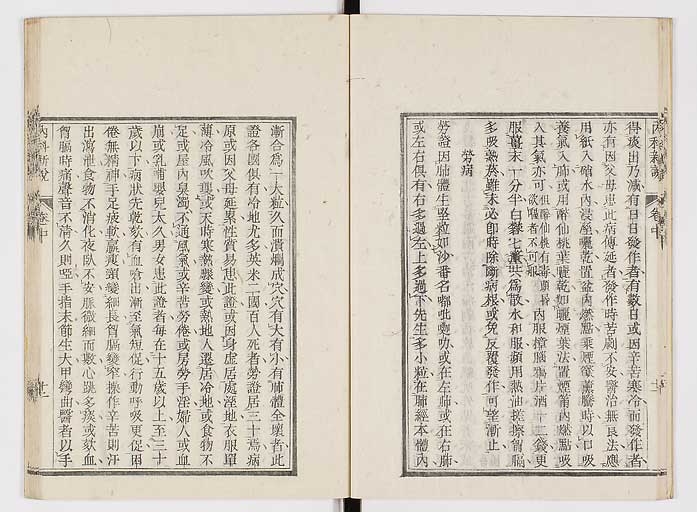 內科新說
卷中
得痰出乃減有日日發作者有數日或因辛苦寒冷而發作者
亦有因父母患此病傳延者發作時苦劇不安醫治無良法應
用紙入硝水內浸溼曬乾置盆內燃點乘煙氣薰騰時以口吸
養氣入肺或用醉仙桃葉曬乾如曬煙葉法置煙筩內燃點吸
入其氣亦可但醉仙桃有毒順昏欲嘔者不可服內服樟腦鴉片酒十二錢更
服薑末一分半白礬七釐共為散水和服蘋用熱油搓擦胷膈
多吸熱茶雖未必即時除斷病根或免反覆發作可望漸止
勞病
勞證因肺體生堅粒如沙番名嘟吡嘰叻或在左肺或在右肺
或左右俱有右多過左上多過下先生多小粒在肺經本體內
漸合為一大粒久而潰爛成穴穴有大有小有肺體全壞者此
證各國俱有冷地尤多英米二國百人死者勞證居三十焉病
原或因父母延累性質易患此證或因身虛居處溼地衣服單
薄冷風吹襲或天時寒熱驟變或熱地人遷居冷地或食物不
足或屋內臭濁不通風氣或辛苦勞倦或房勞手淫婦人或血
崩或乳哺嬰兒太久男女患此證者每在十五歲以上至三十
歲以下病狀先乾欬有血嗆出漸至氣短促行動呼吸更促困
倦無精神手足疲軟羸瘦頸變細長胷膈變窄操作辛苦則汗
出瀉泄食物不消化夜臥不安脈微細而數心跳多痰或欬血
胷膈時痛聲音不清久則啞手指末節生大甲彎曲醫者以手
內科新說
卷中